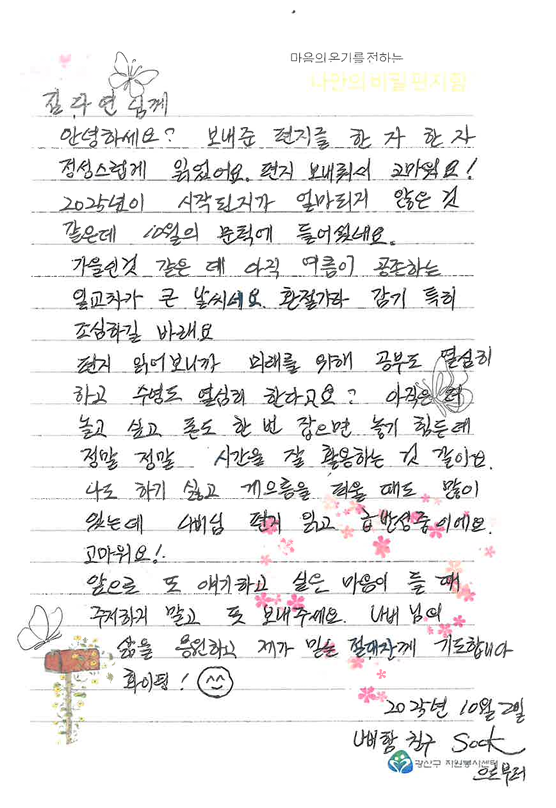 마음의 온기를 전하는
나만의 비밀 편지함
김다연 님께
안녕하세요? 보내준 편지를 한 자 한 자
정성스럽게 읽었어요. 편지 보내줘서 고마워요!
2025년이 시작된지가 얼마되지 않은 것
같은데 10월의 문턱에 들어섰네요.
가을인것 같은 데 아직 여름이 공존하는
일교차가 큰 날씨네요. 환절기라 감기 특히
조심하길 바래요
편지 읽어보니까 미래를 위해 공부도 열심히
하고 수영도 열심히 한다고요? 아직은 더
놀고 싶고 폰도 한 번 잡으면 놓기 힘든데
정말 정말 시간을 잘 활용하는 것 같아요.
나도 하기 싫고 게으름을 피울 때도 많이
있는데 나비님 편지 읽고 급반성중이에요.
고마워요!
앞으로 또 얘기하고 싶은 마음이 들 때
주저하지 말고 또 보내주세요. 나비님의
삶을 응원하고 제가 믿는 절대자께 기도합니다
화이팅!
2025년 10월 2일
나비함 친구 Sock
광산구 자원봉사센터
으로부터